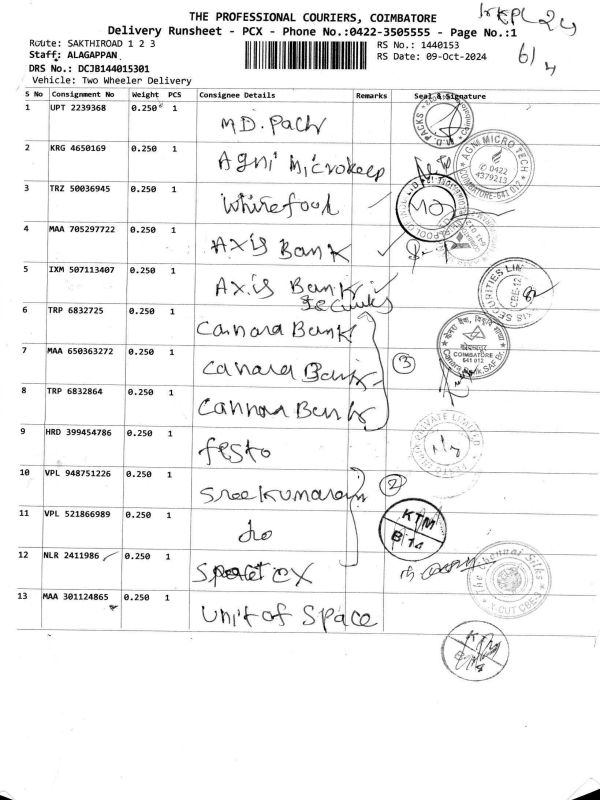 THE PROFESSIONAL COURIERS, COIMBATORE
KKPL 24
Delivery Runsheet - PCX - Phone No.:0422-3505555 - Page No.:1
Route: SAKTHIROAD 1 2 3
RS No.: 1440153
6/4
Staff: ALAGAPPAN
RS Date: 09-Oct-2024
DRS No.: DCJB144015301
Vehicle: Two Wheeler Delivery
S No Consignment No Weight PCS Consignee Details Remarks Seal & Signature
1 UPT 2239368 0.250 1 M D. Pack
M.D. PACKS
2 KRG 4650169 0.250 1 Agni Microkeep
AGNI MICRO TECH
0422
4379212
COIMBATORE-641 012
3 TRZ 50036945 0.250 1 Whirefool
4 MAA 705297722 0.250 1 Axis Bank
5 IXM 507113407 0.250 1 Axis Bank
SECURITIES LIM
CBE-12
6 TRP 6832725 0.250 1 Canara Bank
COIMBATORE
641 012
7 MAA 650363272 0.250 1 Canara Bank
3
8 TRP 6832864 0.250 1 Cannara Bank
PRIVATE LIMITED
9 HRD 399454786 0.250 1 festo
10 VPL 948751226 0.250 1 Sreekumaran
2
11 VPL 521866989 0.250 1 do
KTM
B 14
12 NLR 2411986 0.250 1
The Chennai Silks
X-CUT CBE-3
13 MAA 301124865 0.250 1 Unit of Space
KTM